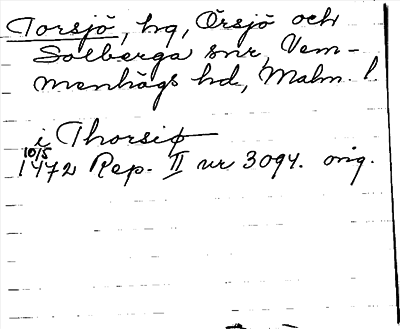 Torsjö, hg, Örsjö och
Solberga snr, Vem-
menhögs hd, Malm. l.
i Thorsiø
10/5
1472 Rep. II nr 3094. orig.